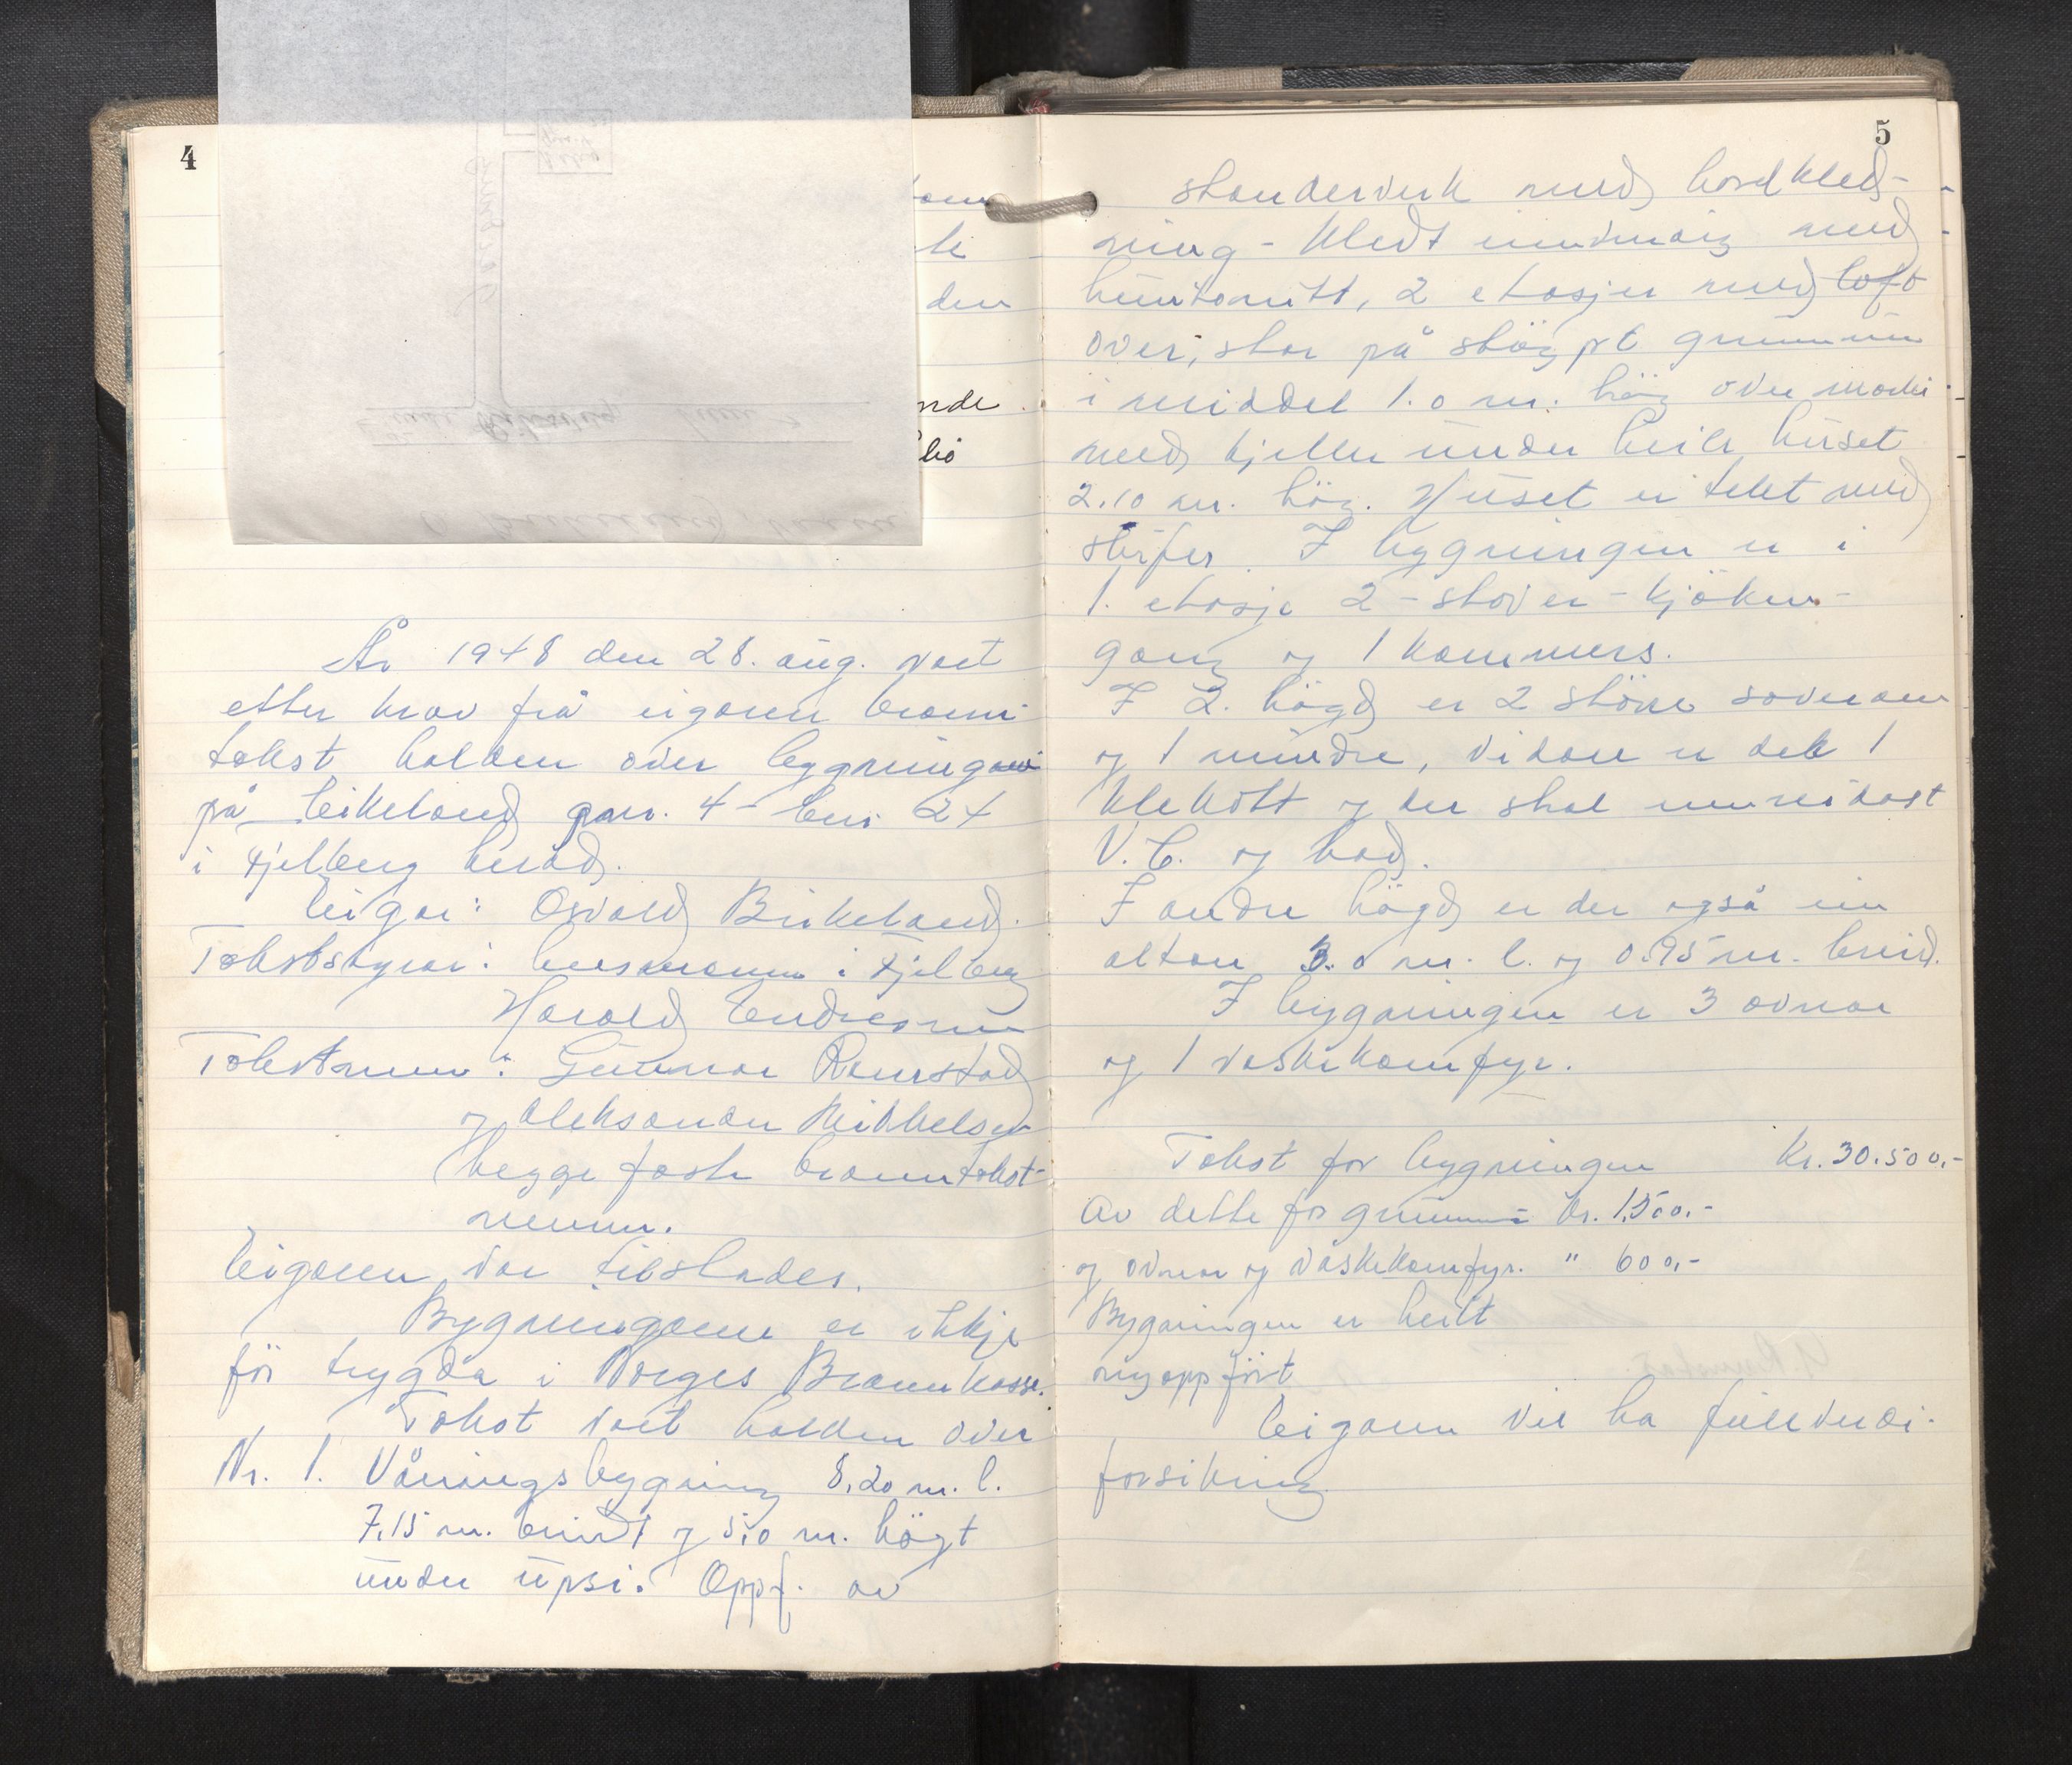 4
den
nde
År 1948 den 28. aug. vart
etter krav frå eigaren brann-
takst halden over bygningane
på Eikeland gnr. 4 - bnr. 24
i Fjelberg herad.
Eigar: Osvald Birkeland.
Takststyrar: lensmann i Fjelberg
Harald Endresen
Takstmenn: Gunnar Ramstad
og Aleksander Mikkelsen
begge faste branntakst-
menn.
Eigaren var tilstades.
Bygningane er ikkje
för trygda i Norges Brannkasse.
Takst vart halden over
Nr. 1. Våningsbygning 8,20 m. l.
7,15 m. breidt og 5,0 m. högt
under upsi. Oppf. av
5
standerverk med bordkled-
ning - kledt innvendig med
huntonitt, 2 etasjer med loft
over, star på stöypt grunnmur
i middel 1.0 m. hög over marki
med kjeller under heile huset
2.10 m. hög. Huset er tekt med
skifer. I bygningen er i
1. etasje 2 - stover - kjöken -
gang og 1 kammers.
I 2. högd er 2 större soverom
og 1 mindre, vidare er det 1
klekott og der skal innreidast
V.C. og bad.
I andre högd er der også ein
altan 3.0 m. l. og 0.95 m. breid.
I bygningen er 3 ovnar
og 1 vaskekomfyr.
Takst for bygningen Kr. 30.500.-
Av dette for grunnmur Kr. 1.500.-
og ovnar og vaskekomfyr. " 600,-
Bygningen er heilt
nyoppfört
Eigaren vil ha fullverdi-
forsikring